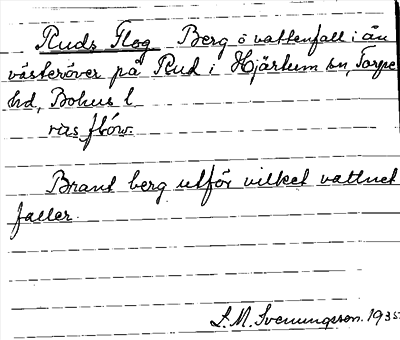 Ruds Flog Berg o vattenfall i ån
västeröver på Rud i Hjärtum sn, Torpe
hd, Bohus l.
Brant berg utför vilket vattnet
faller.
S. M. Svenungsson. 1935